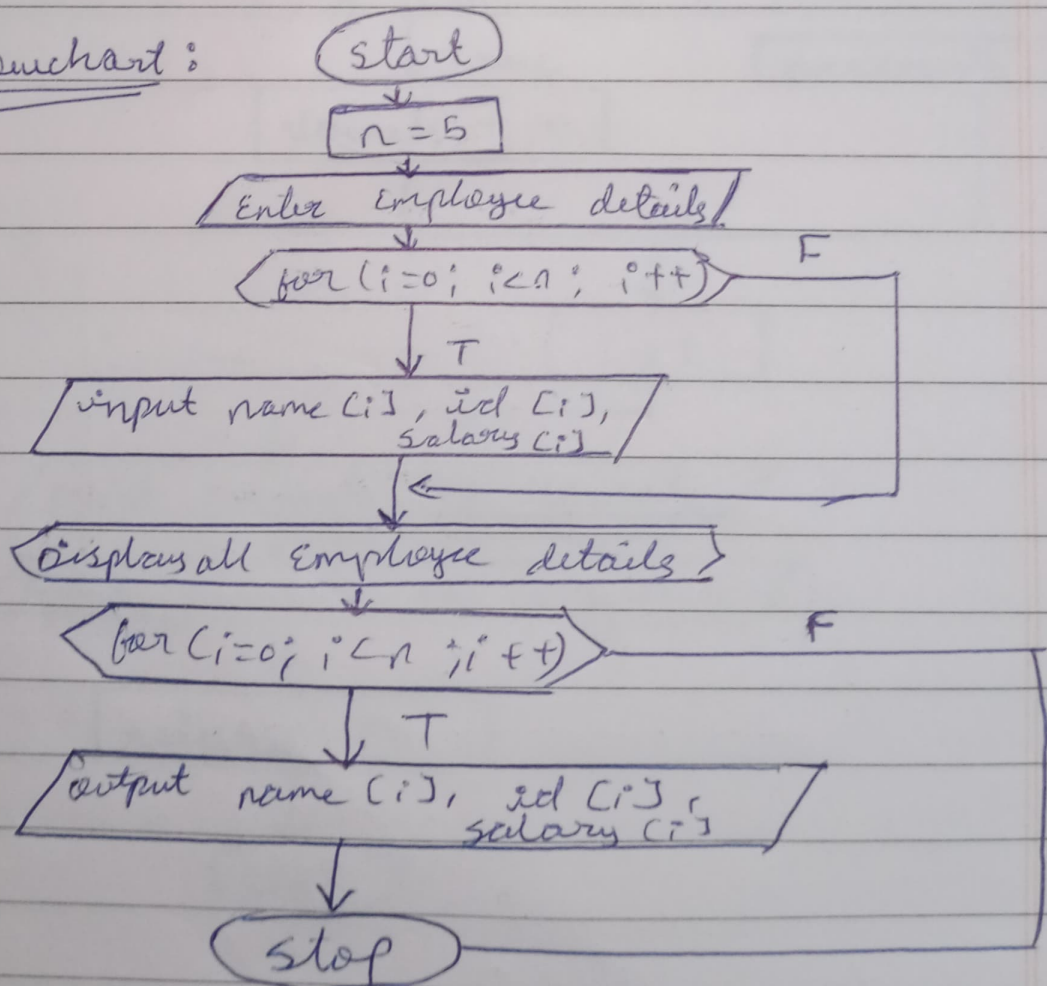 owchart :
start
n = 5
Enter Employee details
for (i=0; i<n; i++)
F
T
input name [i], id [i],
salary [i]
Displays all Employee details
for (i=0; i<n ; i++)
F
T
output name [i], id [i],
salary [i]
stop